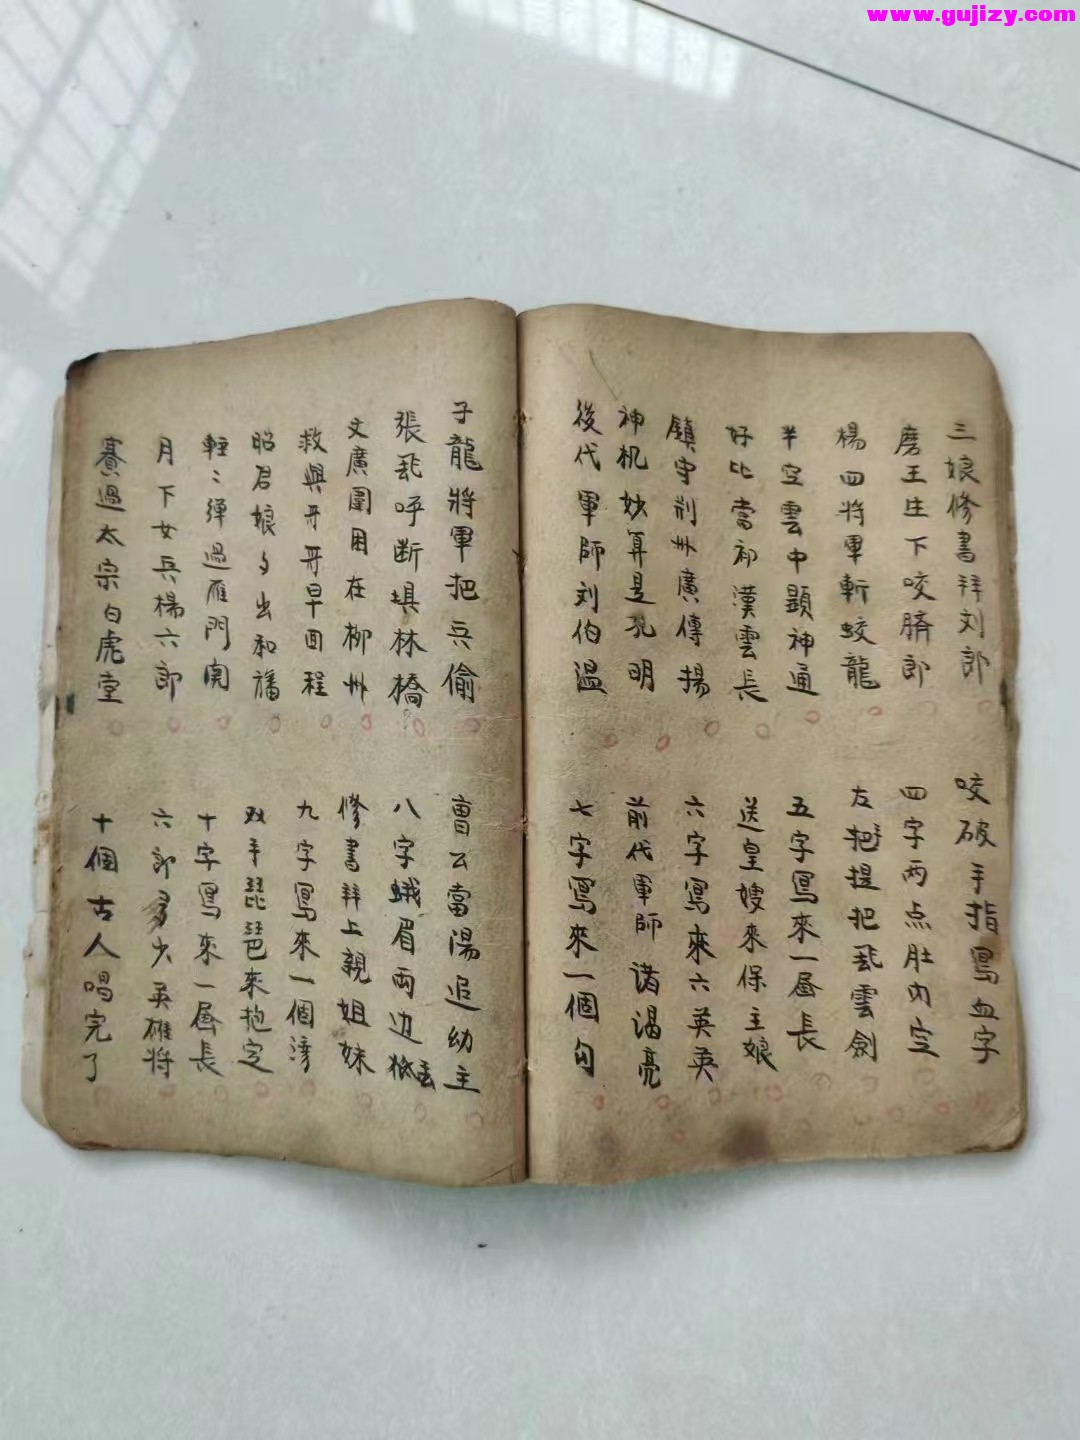 www.gujizy.com
三娘修書拜刘郎
咬破手指寫血字
磨王生下咬臍郎
四字两点肚内空
楊四將軍斬蛟龍
左把提把飛雲劍
半空雲中顕神通
五字寫來一
長
好比當初漢雲長
送皇嫂來保主娘
鎮守荆州廣傳揚
六字寫來六英英
神机妙算是孔明
前代軍師諸渴亮
後代軍師刘伯温
七字寫來一個勾
子龍將軍把兵偷
曹公當陽追幼主
張飛呼断埧林橋
八字蛾眉両边
文廣圍困在柳州
修書拜上親姐妹
救與哥哥早回程
九字寫來一個湾
昭君娘々出和旛
双手琵琶來抱定
輕〻弹過雁門関
十字寫來一
長
月下女兵楊六郎
六郎多少英雄將
賽過太宗白虎堂
十個古人唱完了